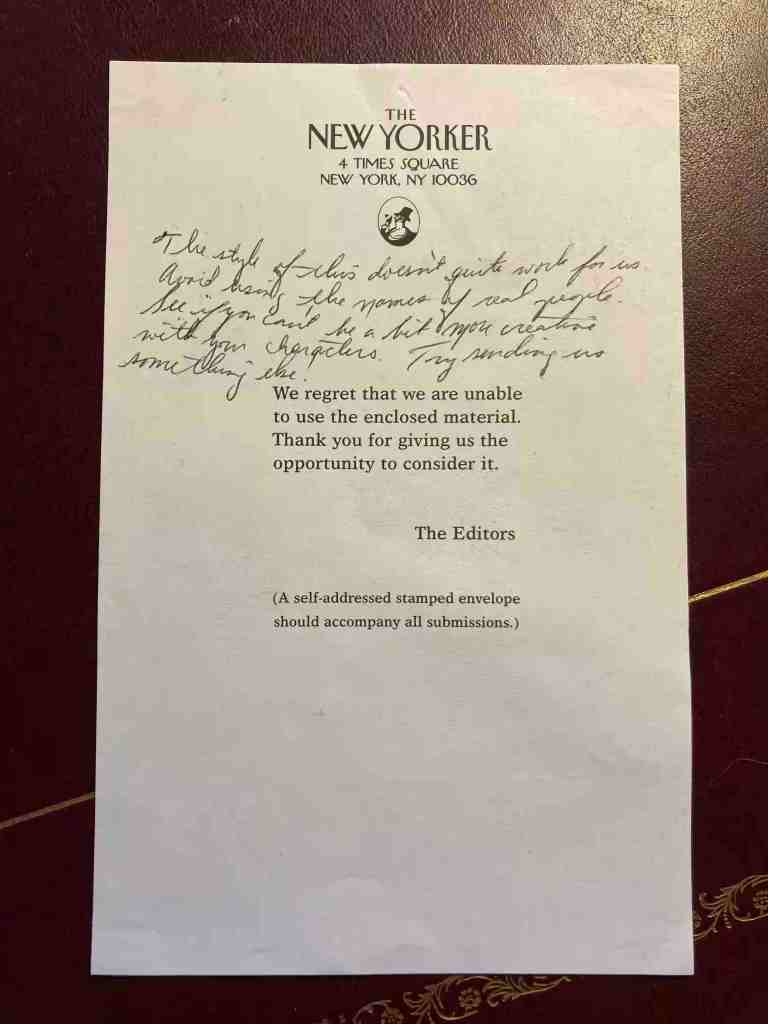 THE
NEW YORKER
4 TIMES SQUARE
NEW YORK, NY 10036
The style of this doesn't quite work for us.
Avoid using the names of real people.
See if you can't be a bit more creative
with your characters. Try sending us
something else.
We regret that we are unable
to use the enclosed material.
Thank you for giving us the
opportunity to consider it.
The Editors
(A self-addressed stamped envelope
should accompany all submissions.)